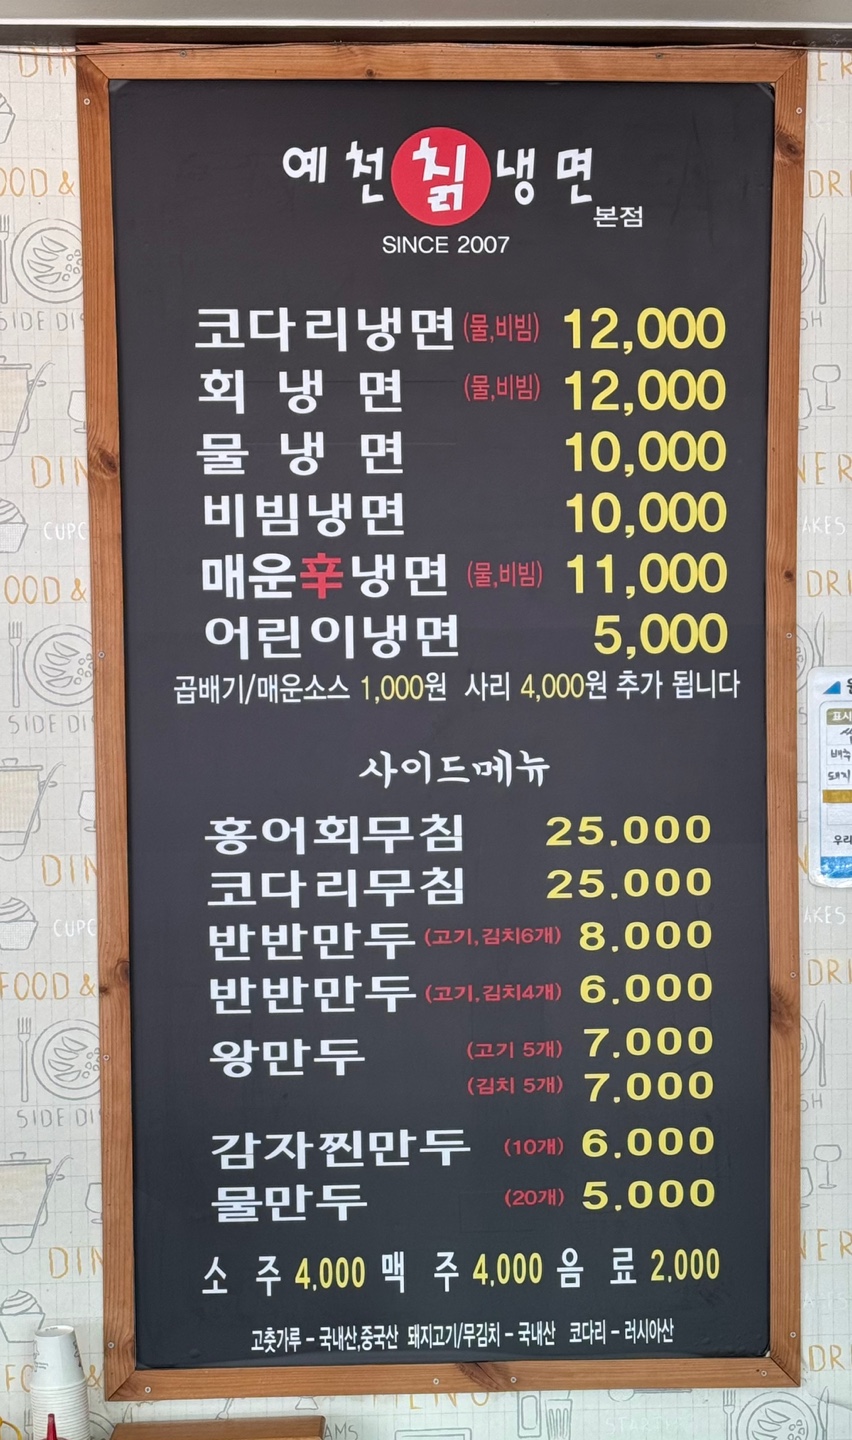 예천칡냉면 본점
SINCE 2007
코다리냉면 (물,비빔) 12,000
회 냉 면 (물,비빔) 12,000
물 냉 면 10,000
비빔냉면 10,000
매운辛냉면 (물,비빔) 11,000
어린이냉면 5,000
곱배기/매운소스 1,000원 사리 4,000원 추가 됩니다
사이드메뉴
홍어회무침 25.000
코다리무침 25.000
반반만두 (고기,김치6개) 8.000
반반만두 (고기,김치4개) 6.000
왕만두 (고기 5개) 7.000
(김치 5개) 7.000
감자찐만두 (10개) 6.000
물만두 (20개) 5.000
소 주 4,000 맥 주 4,000 음 료 2,000
고춧가루 - 국내산,중국산 돼지고기/무김치 - 국내산 코다리 - 러시아산
FOOD &
SIDE DI
CUPC
FOOD &
SIDE DI
CUPC
FOOD &
SIDE DI
MENU
표시
배추
돼지
우리